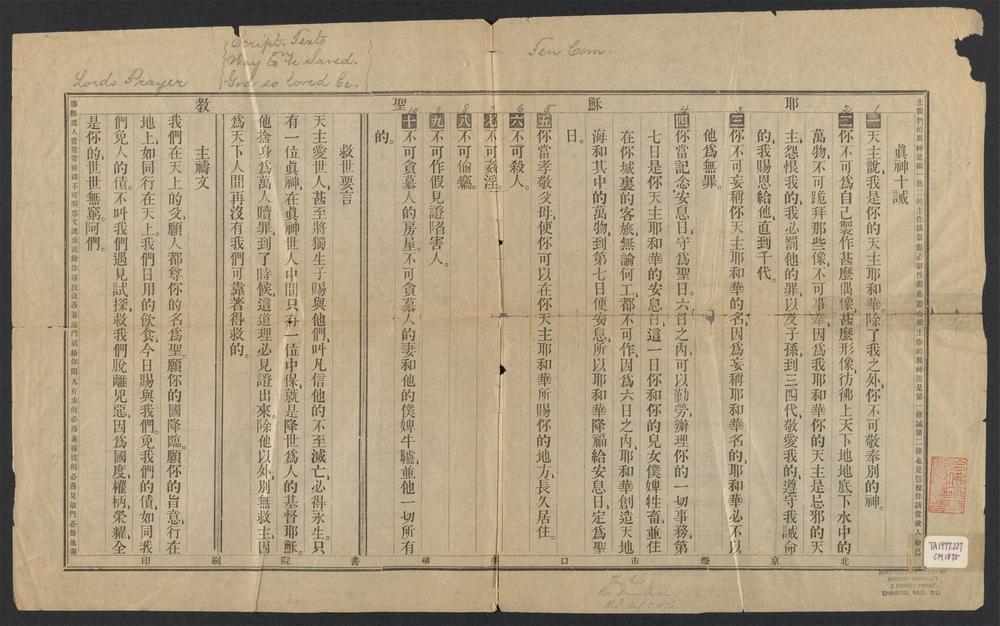 Script. Texts
on
Way to be Saved.
God so loved &c.
Lords Prayer
Ten Com.
耶穌聖教
眞神十誡
一 天主說我是你的天主耶和華。除了我之外、你不可敬奉別的神。
二 你不可爲自己製作甚麼偶像、甚麼形像彷彿上天下地、地底下水中的
萬物、不可跪拜那些像、不可事奉、因爲我耶和華你的天主是忌邪的天
主、怨恨我的、我必罰他的罪、以及子孫到三四代、敬愛我的、遵守我誡命
的、我賜恩給他、直到千代。
三 你不可妄稱你天主耶和華的名、因爲妄稱耶和華名的、耶和華必不以
他爲無罪。
四 你當記念安息日、守爲聖日。六日之內、可以勤勞辦理你的一切事務、第
七日是你天主耶和華的安息日、這一日你和你的兒女僕婢牲畜、並住
在你城裏的客旅、無論何工、都不可作、因爲六日之內、耶和華創造天地
海和其中的萬物、到第七日便安息、所以耶和華降福給安息日、定爲聖
日。
五 你當孝敬父母、使你可以在你天主耶和華所賜你的地方、長久居住。
六 不可殺人。
七 不可姦淫。
八 不可偷竊。
九 不可作假見證陷害人。
十 不可貪慕人的房屋。不可貪慕人的妻、和他的僕婢牛驢、並他一切所有
的。
救世要言
天主愛世人、甚至將獨生子賜與他們、叫凡信他的、不至滅亡、必得永生。只
有一位眞神、在眞神世人中間、只有一位中保、就是降世爲人的基督耶穌。
他捨身爲萬人贖罪、到了時候、這道理必見證出來。除他以外、別無救主、因
爲天下人間、再沒有我們可靠著得救的。
主禱文
我們在天上的父、願人都尊你的名爲聖。願你的國降臨。願你的旨意行在
地上、如同行在天上。我們日用的飲食、今日賜與我們。免我們的債、如同我
們免人的債。不叫我們遇見試探、救我們脫離兇惡、因爲國度、權柄、榮耀、全
是你的、世世無窮。阿們。
北京燈市口美華書院刷印
TA1977.227
CM1875